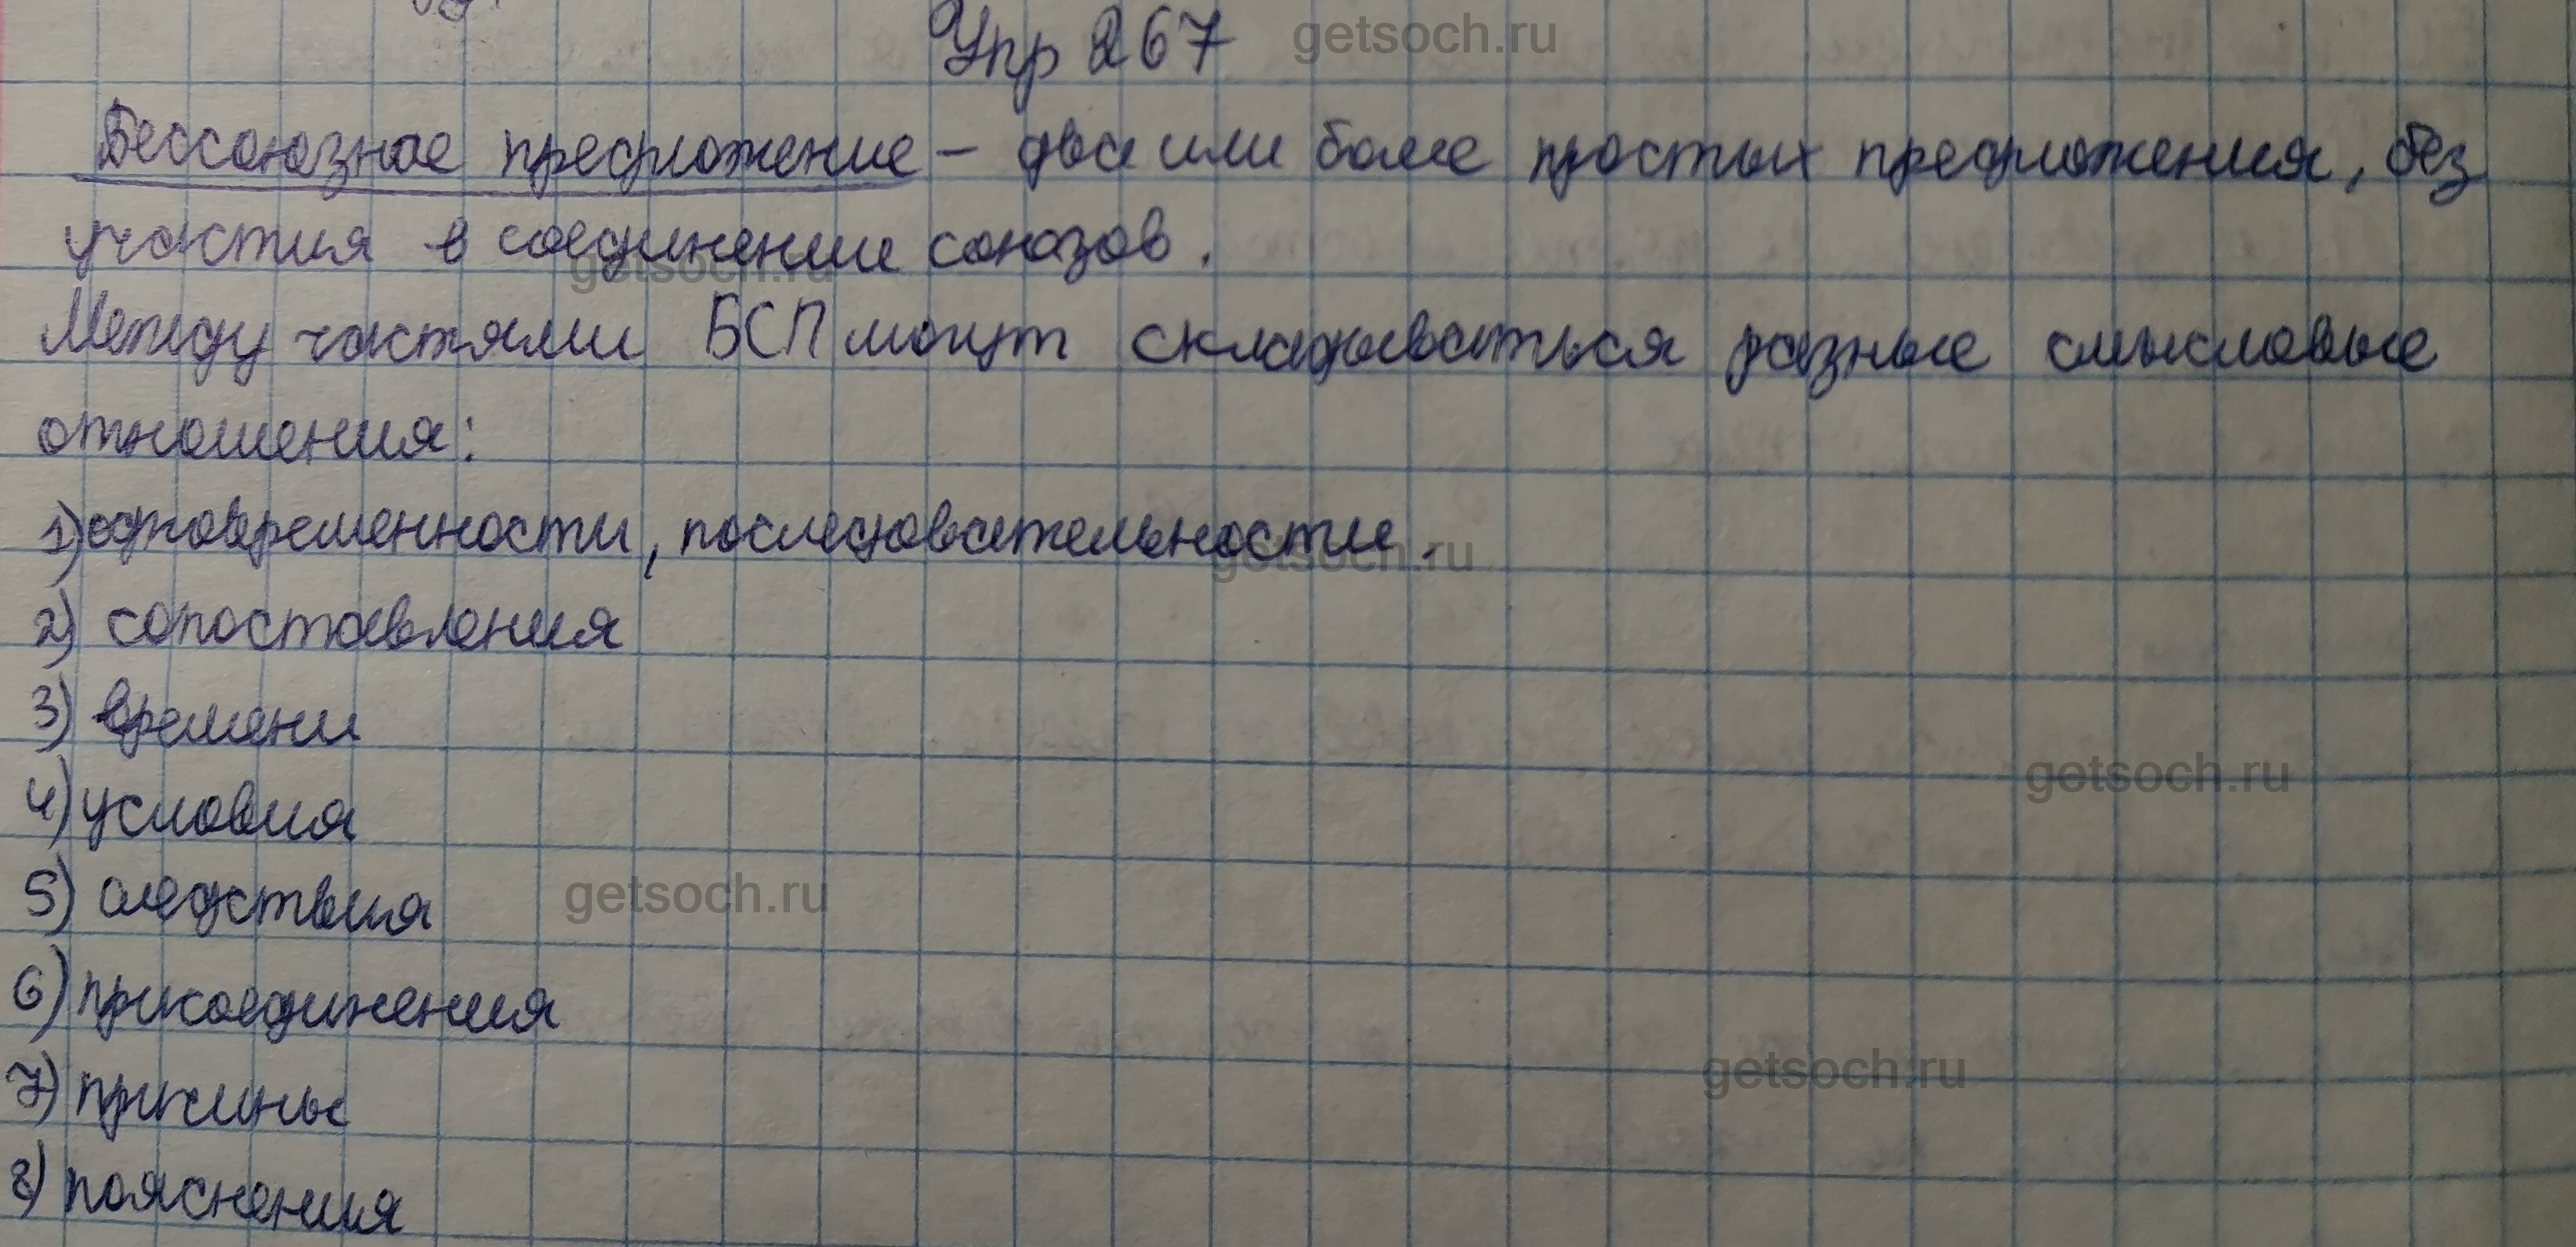 Упр 267 getsoch.ru
Бессоюзное предложение – два или более простых предложения, без
участия в соединении союзов.
getsoch.ru
Между частями БСП могут складываться разные смысловые
отношения:
1) одновременности, последовательности.
getsoch.ru
2) сопоставления
3) времени
getsoch.ru
4) условия
5) следствия
getsoch.ru
6) присоединения
getsoch.ru
7) причины
8) пояснения